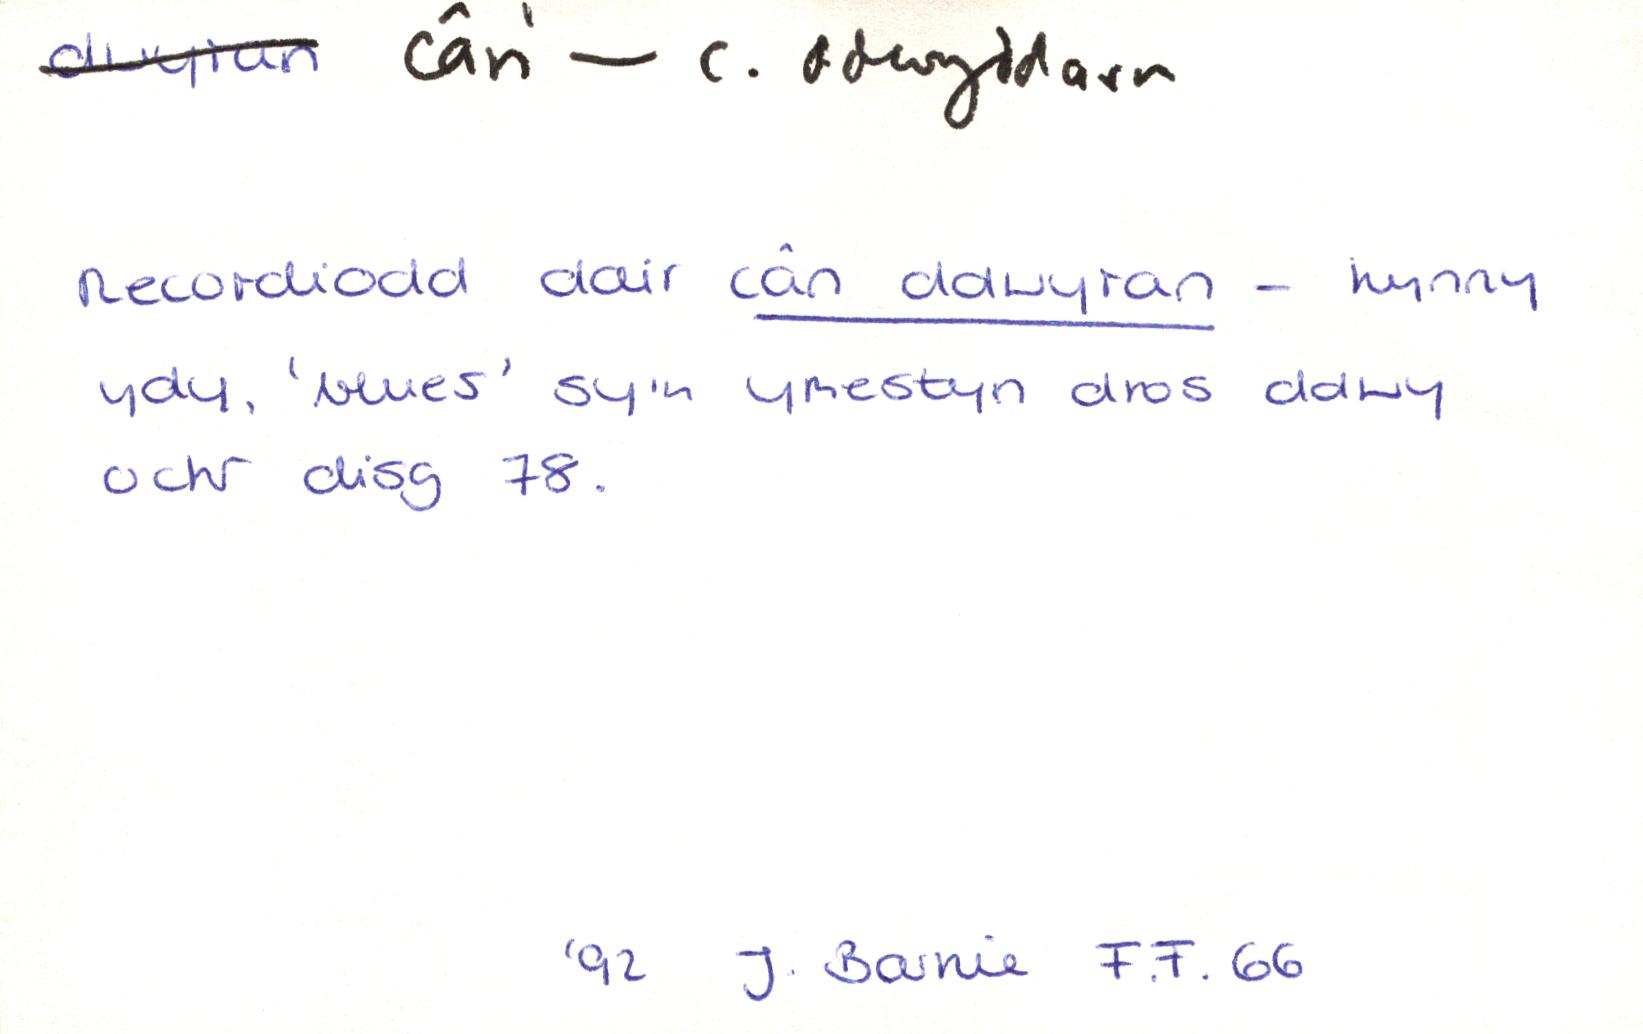 dwyran cân' — c. ddwyddarn
Recordiodd dair cân ddwyran – hynny
ydy, 'blues' sy'n ymestyn dros ddwy
ochr disg 78.
'92 J. Barnie F.F. 66